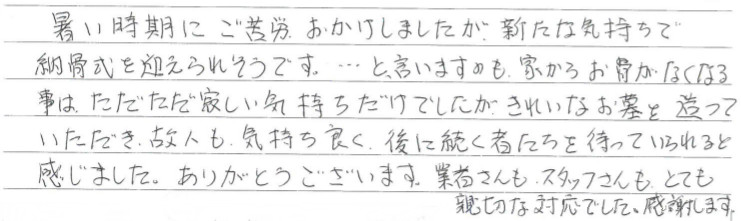 暑い時期に ご苦労 おかけしましたが、新たな気持ちで
納骨式を迎えられそうです。…と、言いますのも、家からお骨がなくなる
事は、ただただ寂しい気持ちだけでしたが、きれいなお墓を造って
いただき、故人も、気持ち良く、後に続く者たちを待っていられると
感じました。ありがとうございます。業者さんも、スタッフさんも、とても
親切な対応でした。感謝します。